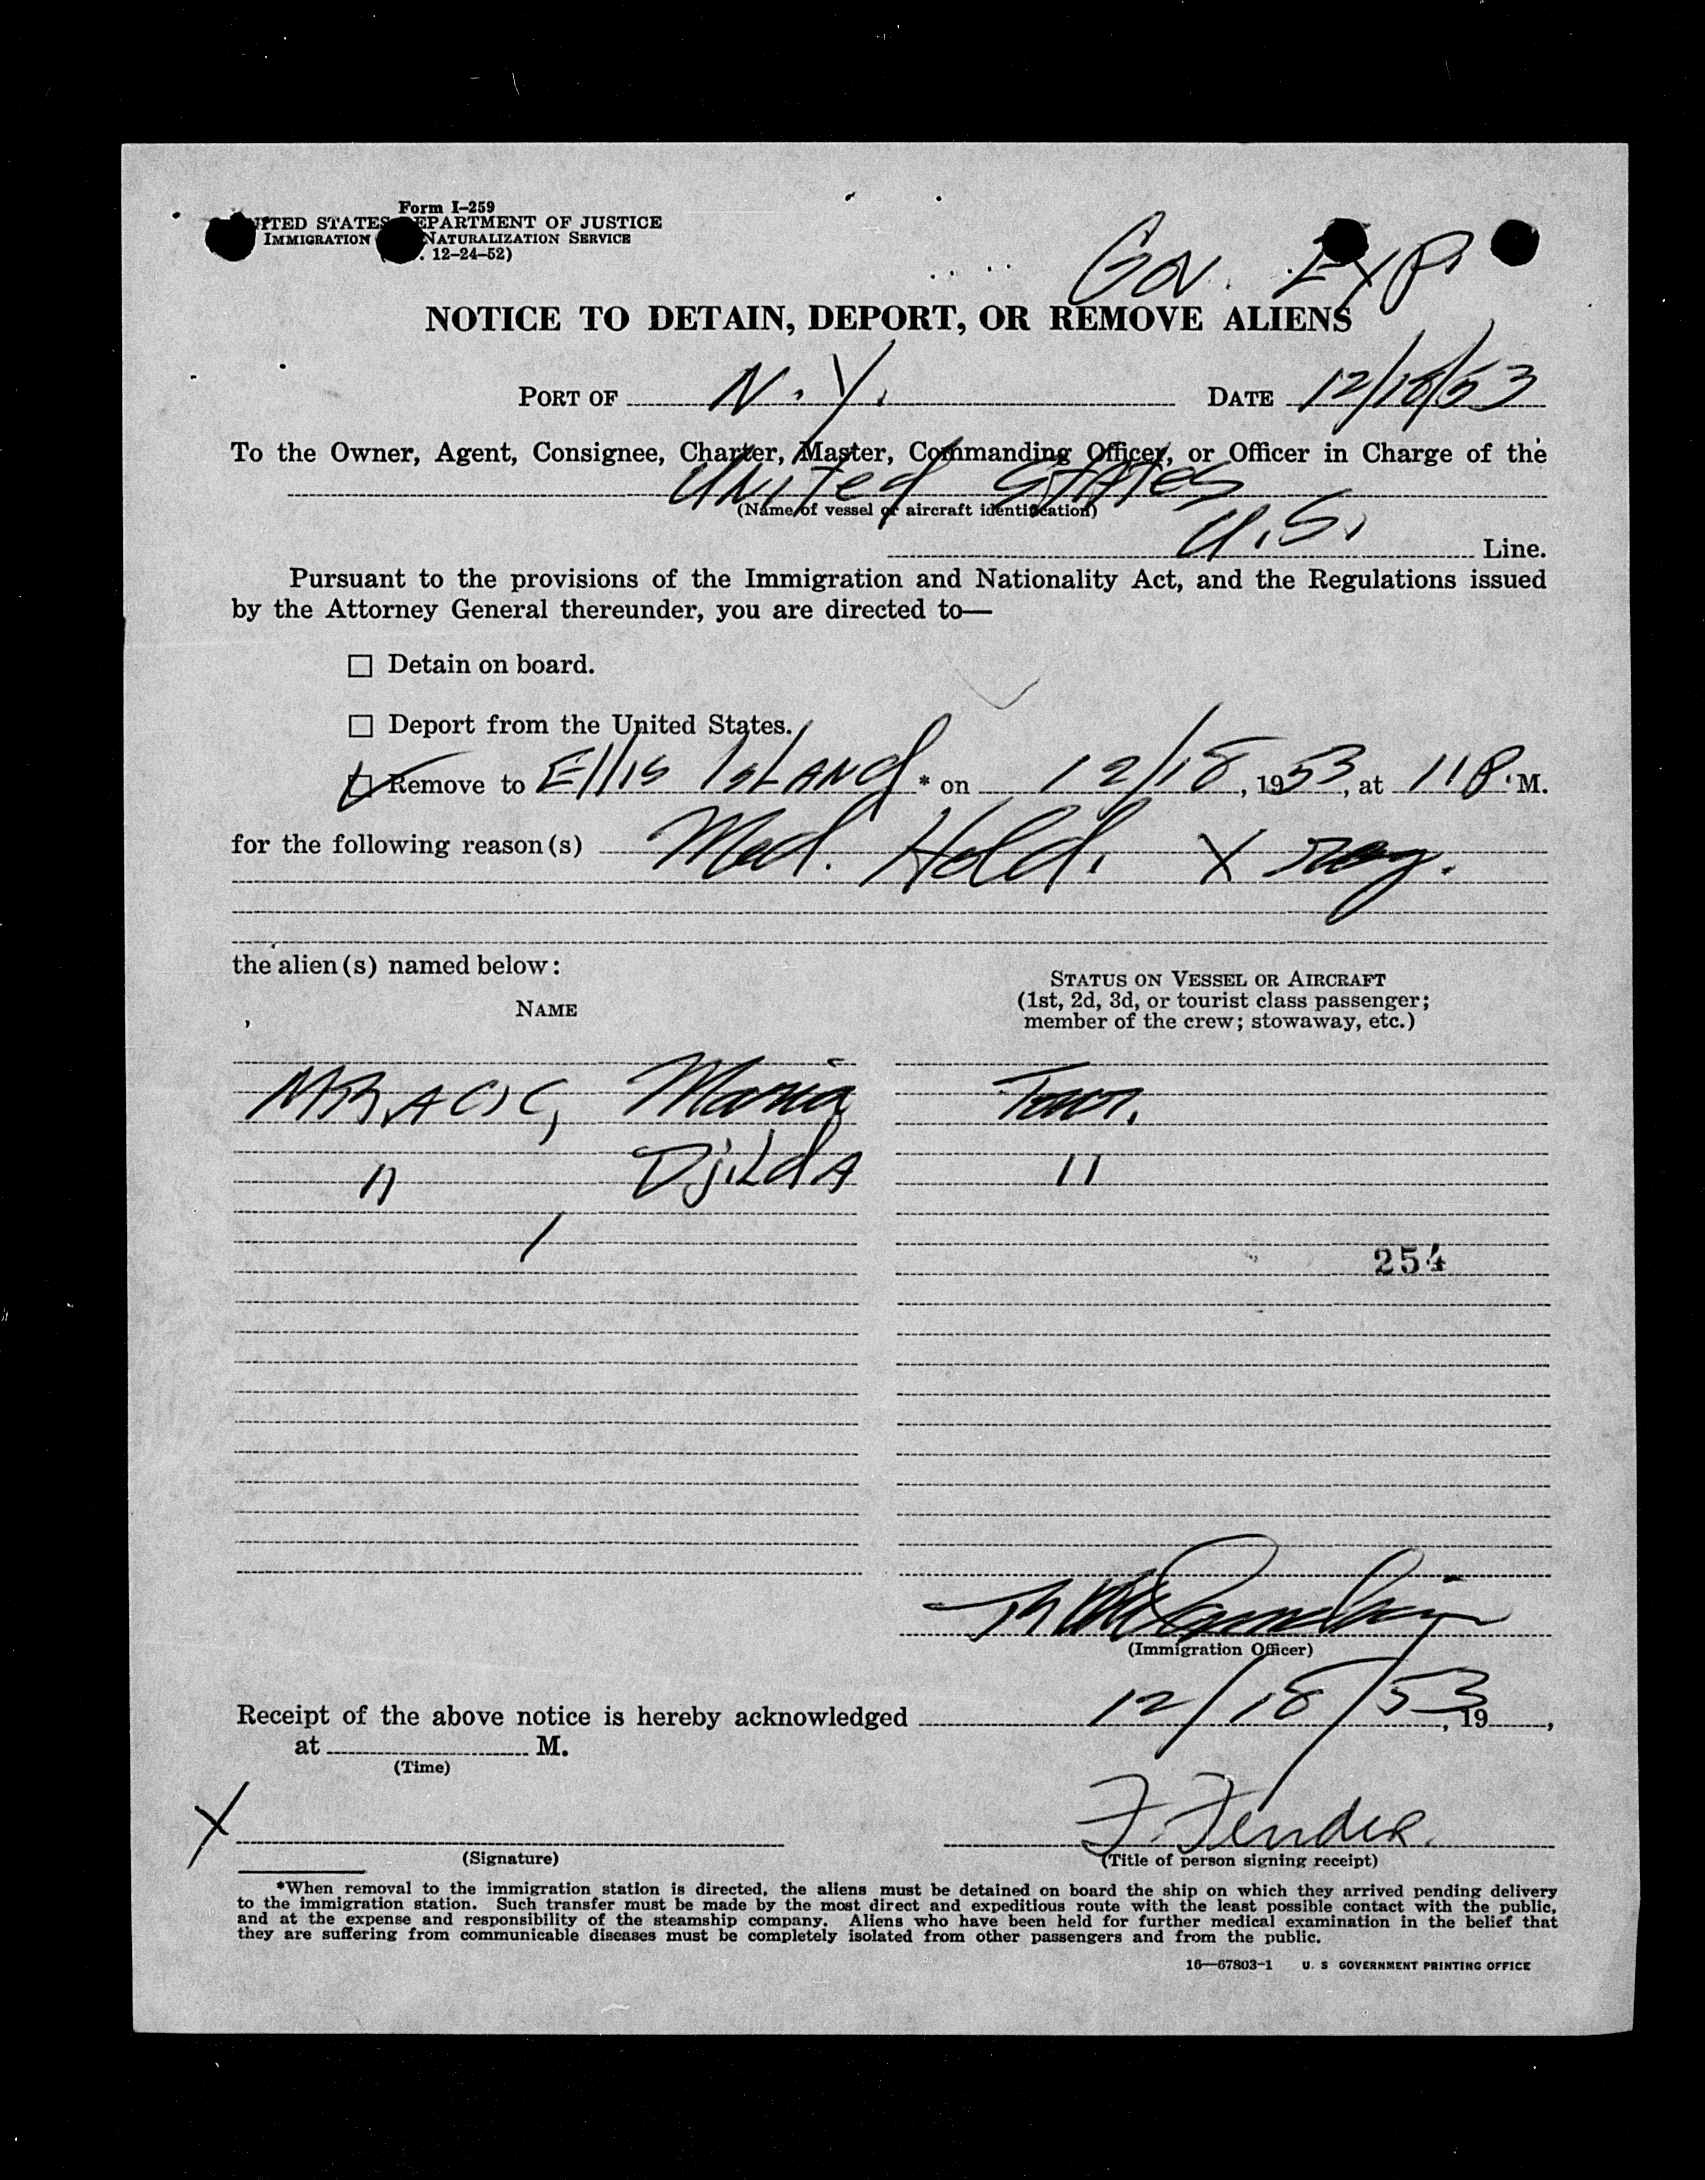 Form I-259
UNITED STATES DEPARTMENT OF JUSTICE
IMMIGRATION NATURALIZATION SERVICE
. 12-24-52)
Gov. Exp.
NOTICE TO DETAIN, DEPORT, OR REMOVE ALIENS
PORT OF N.Y. DATE 12/18/53
To the Owner, Agent, Consignee, Charter, Master, Commanding Officer, or Officer in Charge of the
United States
(Name of vessel or aircraft identification)
U.S. Line.
Pursuant to the provisions of the Immigration and Nationality Act, and the Regulations issued
by the Attorney General thereunder, you are directed to—
☐ Detain on board.
☐ Deport from the United States.
☑ Remove to Ellis Island * on 12/18, 1953, at 11 P. M.
for the following reason(s) Med. Hold. X ray.
the alien(s) named below:
NAME
STATUS ON VESSEL OR AIRCRAFT
(1st, 2d, 3d, or tourist class passenger;
member of the crew; stowaway, etc.)
MRACIC, Maria Tour.
" Djilda "
254
(Immigration Officer)
Receipt of the above notice is hereby acknowledged 12/18/53, 19 ,
at M.
(Time)
X
F. Fender
(Signature) (Title of person signing receipt)
*When removal to the immigration station is directed, the aliens must be detained on board the ship on which they arrived pending delivery
to the immigration station. Such transfer must be made by the most direct and expeditious route with the least possible contact with the public,
and at the expense and responsibility of the steamship company. Aliens who have been held for further medical examination in the belief that
they are suffering from communicable diseases must be completely isolated from other passengers and from the public.
16—67803-1 U. S GOVERNMENT PRINTING OFFICE